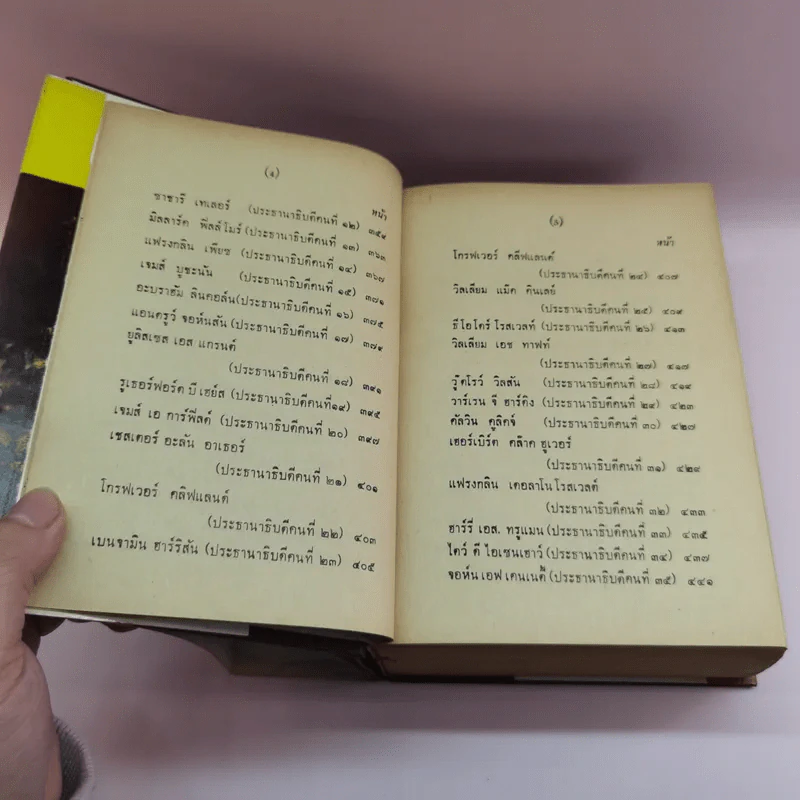 (4)
หน้า
ซาชารี เทเลอร์ (ประธานาธิบดีคนที่ ๑๒) ๓๕๙
มิลลาร์ด ฟิลล์โมร์ (ประธานาธิบดีคนที่ ๑๓) ๓๖๓
แฟรงกลิน เพียซ (ประธานาธิบดีคนที่ ๑๔) ๓๖๗
เจมส์ บูชะนัน (ประธานาธิบดีคนที่ ๑๕) ๓๗๑
อะบราฮัม ลินคอล์น (ประธานาธิบดีคนที่ ๑๖) ๓๗๕
แอนดรูว์ จอห์นสัน (ประธานาธิบดีคนที่ ๑๗) ๓๗๙
ยูลิสเซส เอส แกรนต์
(ประธานาธิบดีคนที่ ๑๘) ๓๙๑
รูเธอร์ฟอร์ด บี เฮย์ส (ประธานาธิบดีคนที่ ๑๙) ๓๙๕
เจมส์ เอ การ์ฟิลด์ (ประธานาธิบดีคนที่ ๒๐) ๓๙๗
เชสเตอร์ อะลัน อาเธอร์
(ประธานาธิบดีคนที่ ๒๑) ๔๐๑
โกรฟเวอร์ คลิฟแลนด์
(ประธานาธิบดีคนที่ ๒๒) ๔๐๓
เบนจามิน ฮาร์ริสัน (ประธานาธิบดีคนที่ ๒๓) ๔๐๕
หน้า
โกรฟเวอร์ คลิฟแลนด์
(ประธานาธิบดีคนที่ ๒๔) ๔๐๗
วิลเลียม แม็ค คินเลย์
(ประธานาธิบดีคนที่ ๒๕) ๔๐๙
ธีโอโดร์ โรสเวลท์ (ประธานาธิบดีคนที่ ๒๖) ๔๑๓
วิลเลียม เอช ทาฟท์
(ประธานาธิบดีคนที่ ๒๗) ๔๑๗
วู๊ดโรว์ วิลสัน (ประธานาธิบดีคนที่ ๒๘) ๔๑๙
วาร์เรน จี ฮาร์ดิง (ประธานาธิบดีคนที่ ๒๙) ๔๒๓
คัลวิน คูลิดจ์ (ประธานาธิบดีคนที่ ๓๐) ๔๒๗
เฮอร์เบิร์ต คล๊าค ฮูเวอร์
(ประธานาธิบดีคนที่ ๓๑) ๔๒๙
แฟรงกลิน เดอลาโน โรสเวลต์
(ประธานาธิบดีคนที่ ๓๒) ๔๓๓
ฮาร์รี่ เอส. ทรูแมน (ประธานาธิบดีคนที่ ๓๓) ๔๓๕
ไดว์ ดี ไอเซนเฮาว์ (ประธานาธิบดีคนที่ ๓๔) ๔๓๗
จอห์น เอฟ เคนเนดี้ (ประธานาธิบดีคนที่ ๓๕) ๔๔๑